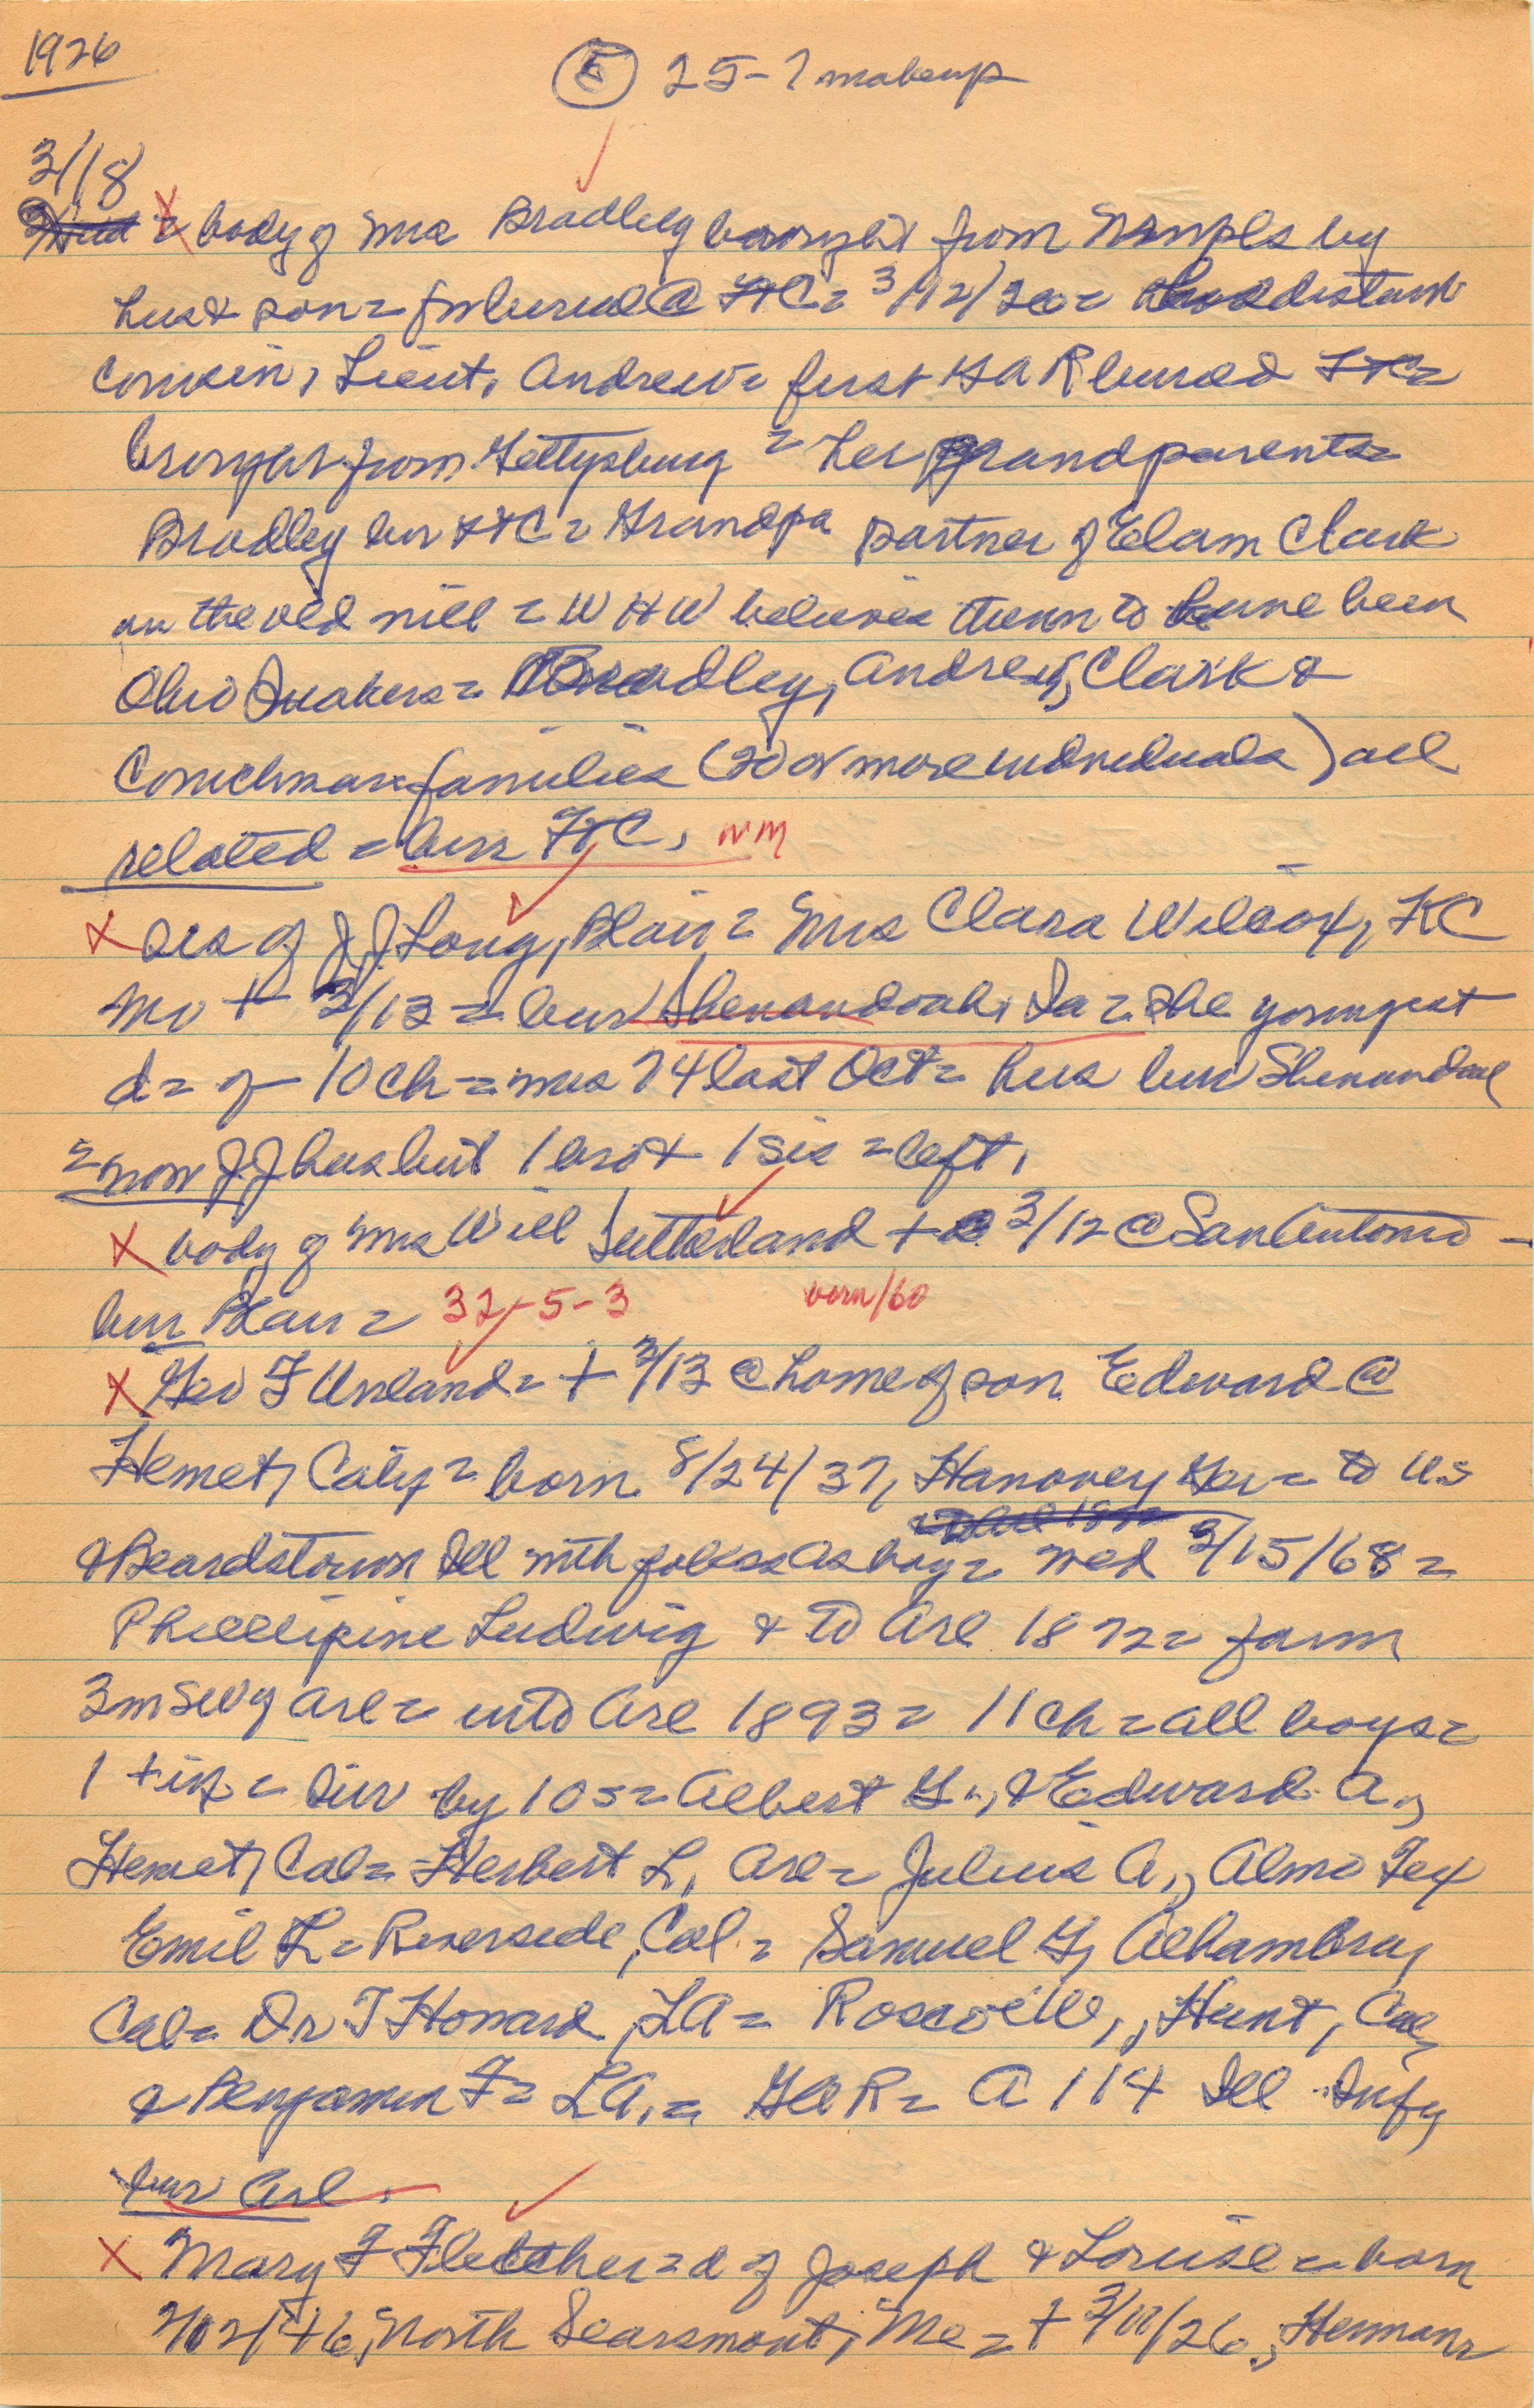 1926
5 25-7 makeup
3/18
x body of Mrs Bradley brought from Mnpls by
hus & son = for burial @ FtC = 3/12/26 = distant
cousin, Lieut. Andrew = first GAR buried FtC =
brought from Gettysburg = her grandparents =
Bradley bur FtC = Grandpa partner of Elam Clark
in the old mill = WHW believes them to have been
Ohio Quakers = Bradley, Andrew, Clark &
Couchman families (20 or more individuals) all
related = bur FtC. WM
x sis of JJ Long, Blair = Mrs Clara Wilcox, KC
Mo + 3/13 = bur Shenandoah, Ia = she youngest
d = of 10 ch = was 74 last Oct = hus bur Shenandoah
= now JJ has but 1 bro & 1 sis = left.
x body of Mrs Will Sutherland + 3/12 @ San Antonio -
bur Blair = 32-5-3 born/60
x Geo F Unland = + 3/13 @ home of son Edward @
Hemet, Calif = born 8/24/37, Hanover, Ger = to US
& Beardstown Ill with folks as boy = wed 3/15/68 =
Phillipine Ludwig & to Arl 1872 = farm
3 m SW of Arl = into Arl 1893 = 11 ch = all boys =
1 + inf = surv by 10 s = Albert G., & Edward A.,
Hemet, Cal = Herbert L, Arl = Julius A., Almo Tex
Emil L = Riverside, Cal = Samuel G, Alhambra,
Cal = Dr T Howard, LA = Roscoe W., Hunt, Cal,
& Benjamin F = LA. = GAR = A 114 Ill Infy
bur Arl.
x Mary F Fletcher = d of Joseph & Louise = born
/46, North Searsmont, Me = + 3/11/26, Hermans